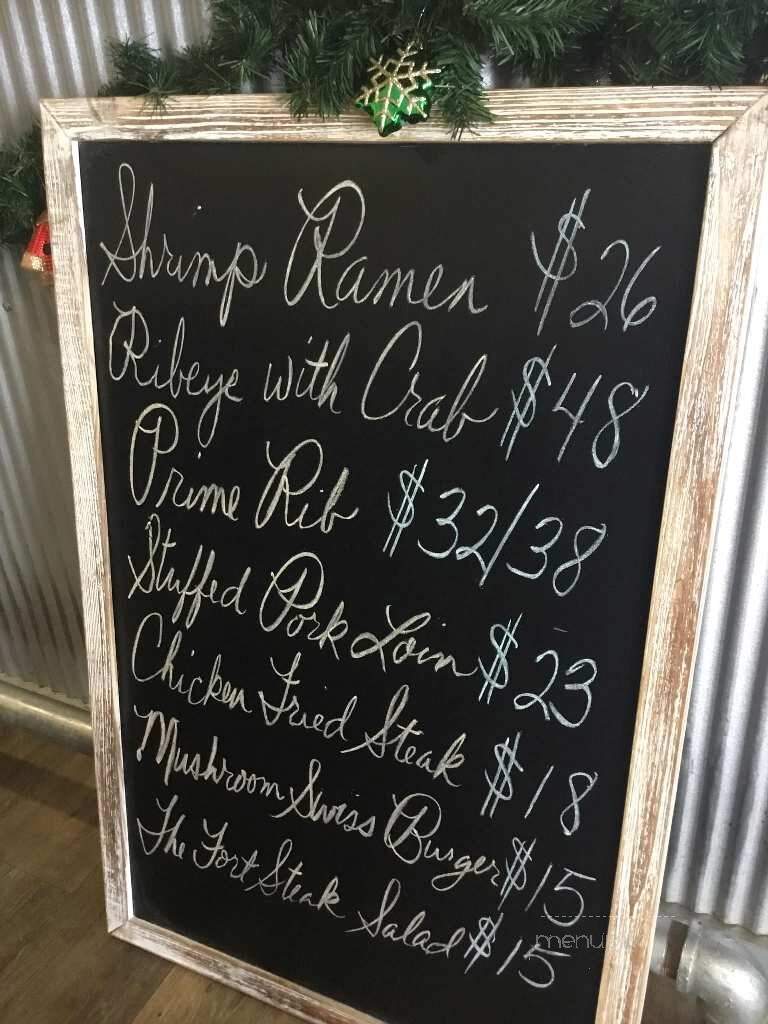 Shrimp Ramen $26
Ribeye with Crab $48
Prime Rib $32/38
Stuffed Pork Loin $23
Chicken Fried Steak $18
Mushroom Swiss Burger $15
The Fort Steak Salad $15